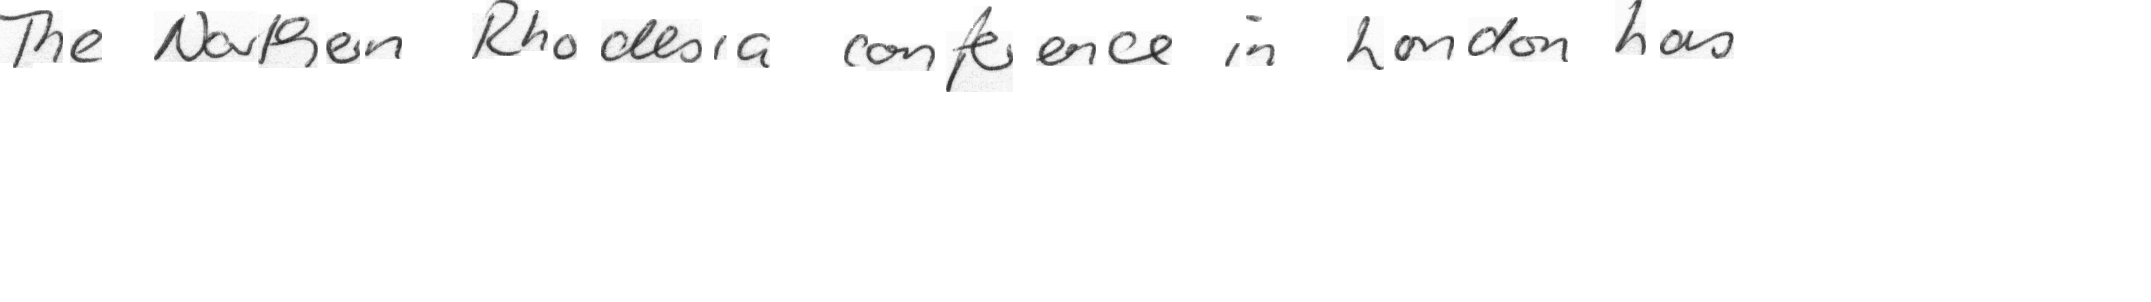 The Northern Rhodesia conference in London has